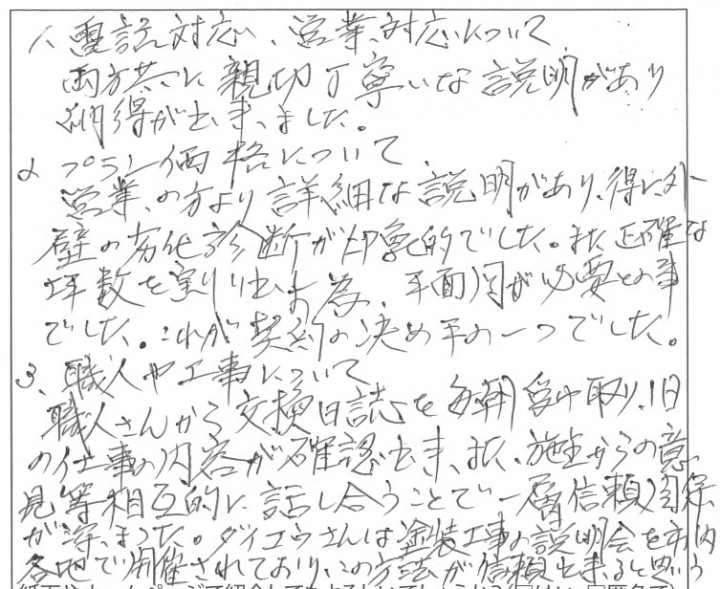 1、電話対応、営業対応について
両方共に親切丁寧いな説明があり
納得が出来ました。
2 プラン価格について
営業の方より詳細な説明があり、得に外
壁の劣化診断が印象的でした。また正確な
坪数を割り出す為、平面図が必要との事
でした。これが契約の決め手の一つでした。
3、職人や工事について
職人さんから交換日誌を毎朝受け取り、1日
の仕事の内容が確認出来、また、施主からの意
見等相互的に話し合うことで一層信頼関係
が深まった。ダイユウさんは塗装工事の説明会を市内
各地で開催されており、この方法が信頼出来ると思う